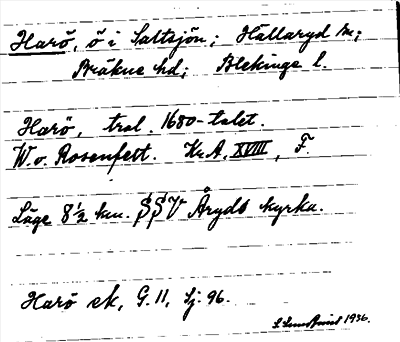 Harö, ö i Saltsjön; Hällaryd sn;
Bräkne hd; Blekinge l.
Harö, trol. 1680-talet.
W. v. Rosenfelt. Kr.A. XVIII, F.
Läge 8 1/2 km. SSV Åryds kyrka.
Harö ek, G. 11, Sj. 96.
1936.